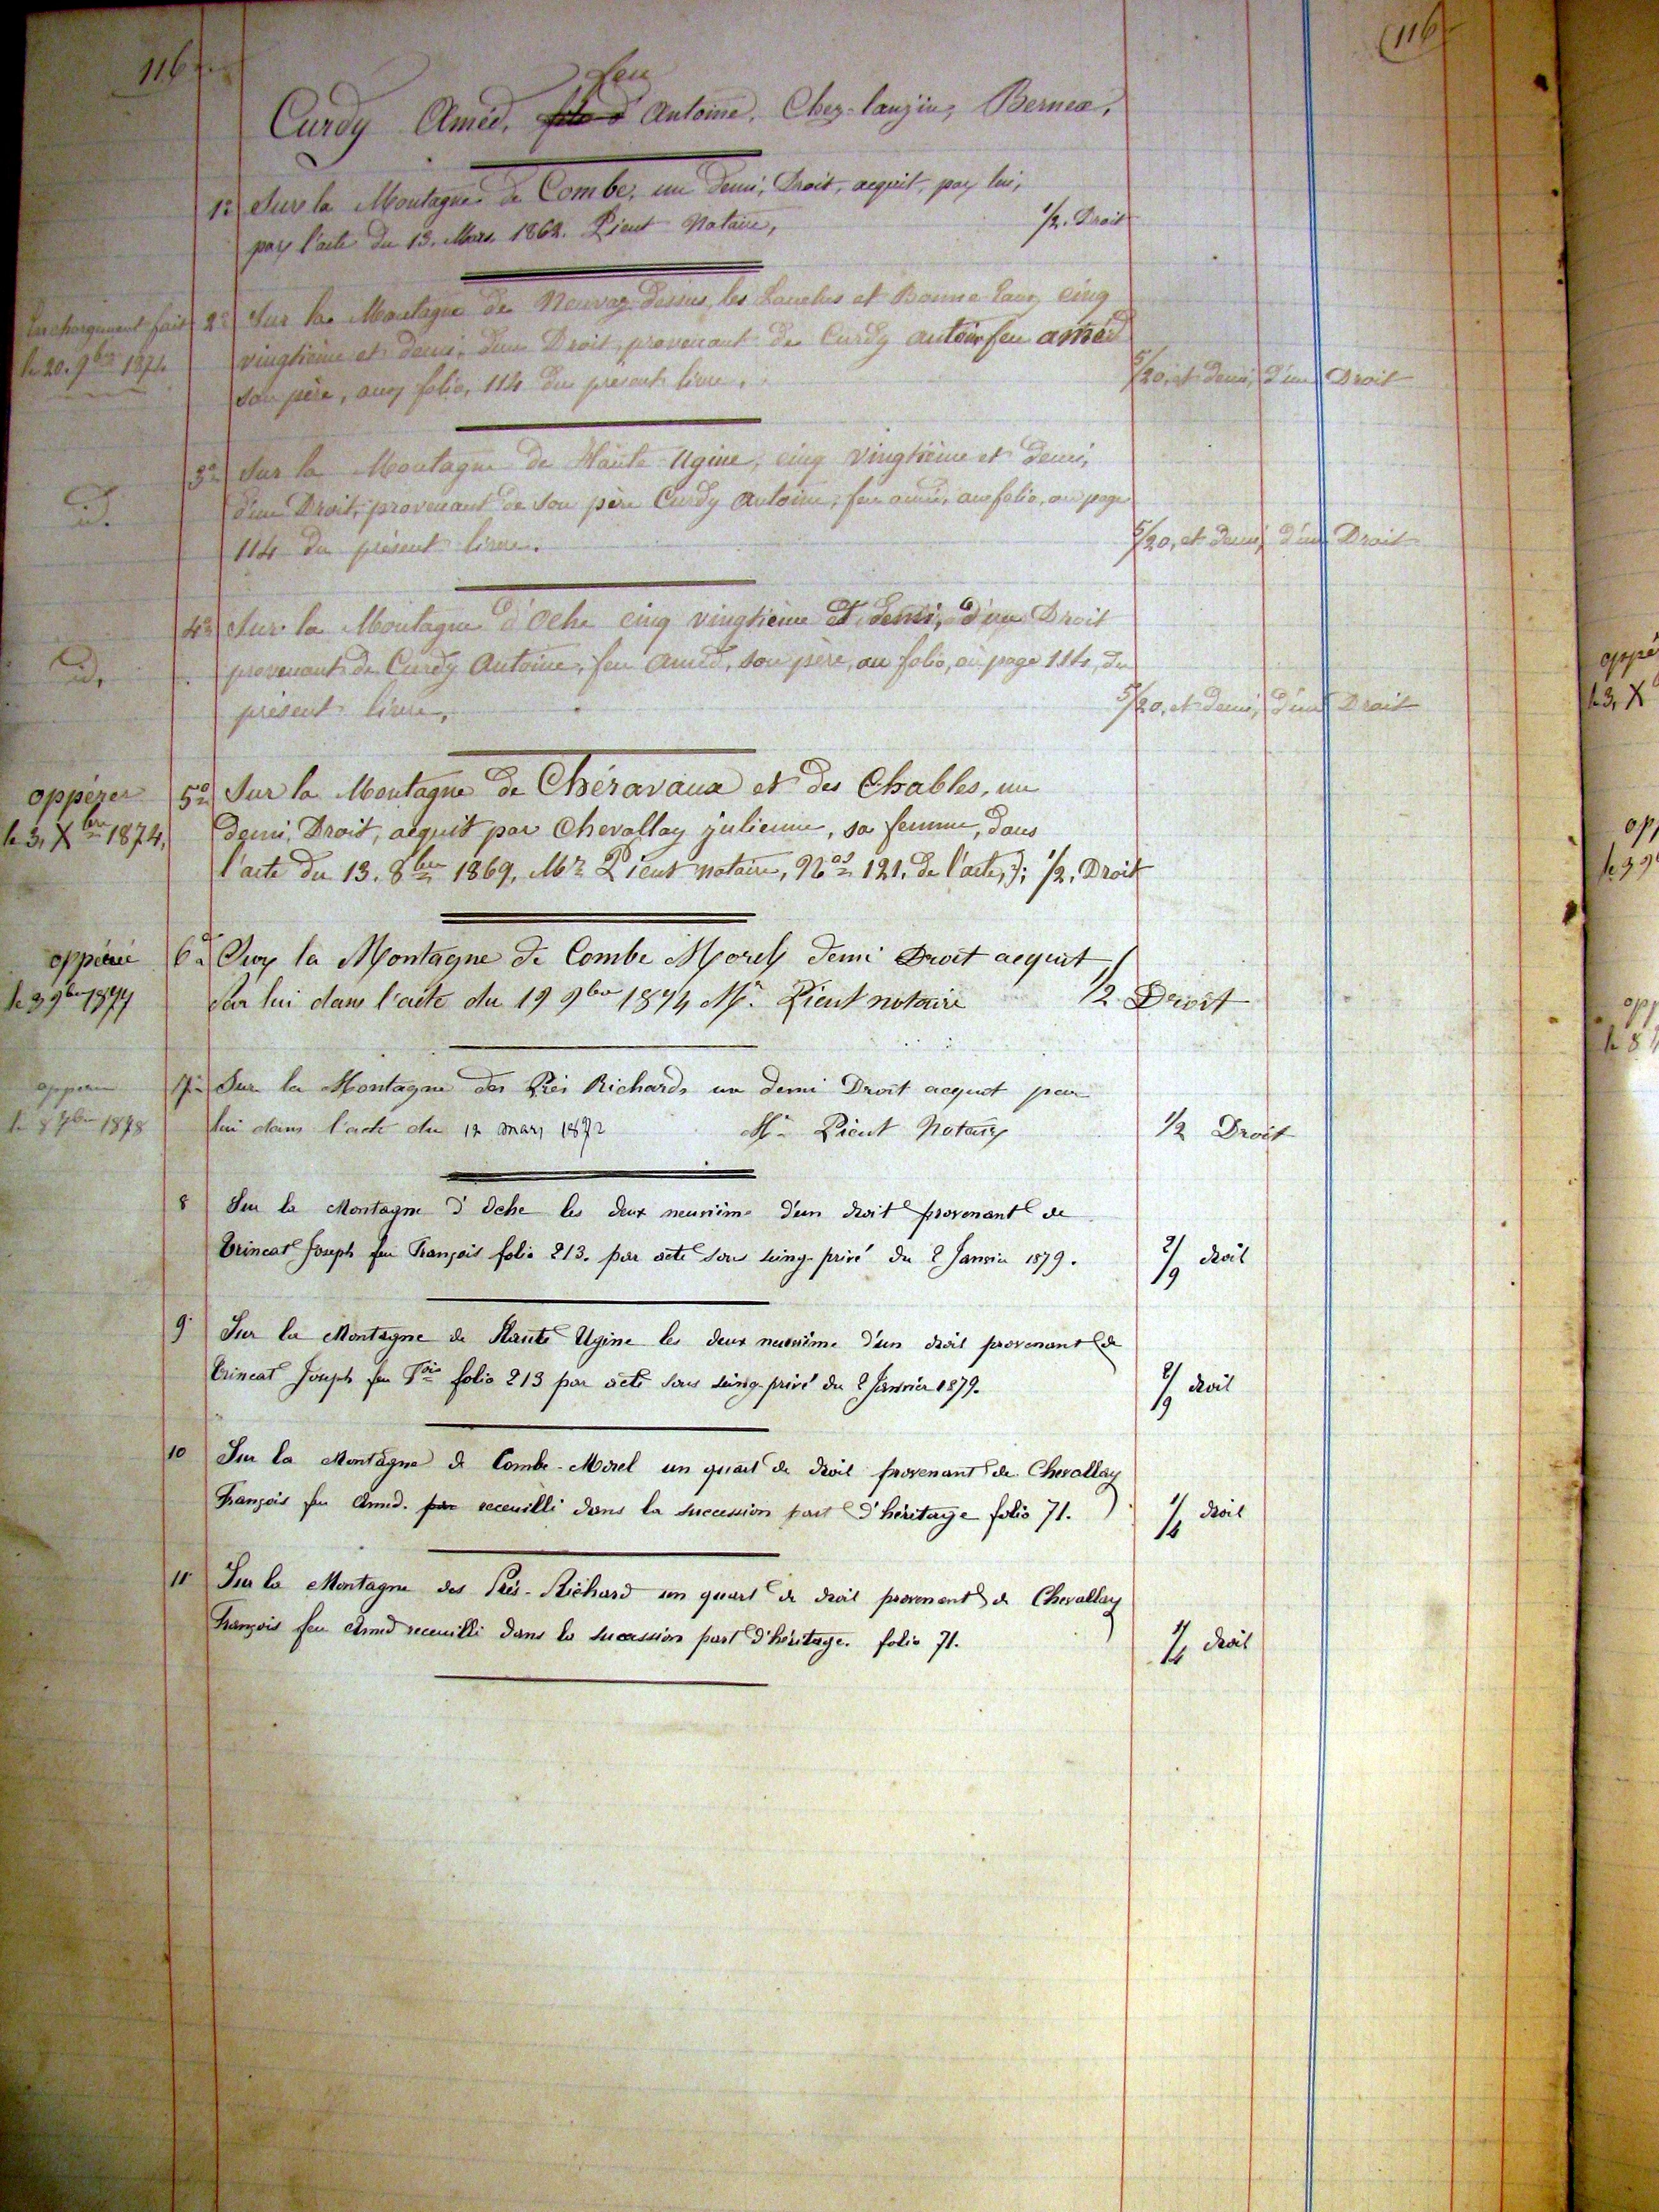 116
(116)
feu
Curdy Amèd, Antoine, Chez-Lanjin, Bernex,
1º Sur la Montagne de Combe, un demi, Droit, acquit, par lui,
par l'acte du 13. Mars 1862. Pieut Notaire, 1/2. Droit
2º Sur la Montagne de Neuvaz Dessus, les et Bonne-Eau, cinq
fait
le 20. 9bre 1874
vingtième et demi, d'un Droit, provenant de Curdy antoine feu amèd
son père, aux folio, 114 du présent livre, 5/20, et demi, d'un Droit
3º Sur la Montagne de Haute-Ugine, cinq vingtième et demi,
d'un Droit, provenant de son père Curdy Antoine, feu amèd, au folio, ou page
id.
114 du présent livre. 5/20, et demi, d'un Droit
4º Sur la Montagne d'Oche cinq vingtième et demi, d'un Droit
id. provenant de Curdy Antoine, feu Amèd, son père, au folio, où page 114, du
présent livre, 5/20, et demi, d'un Droit
oppérer 5º Sur la Montagne de Chéravaux et des Chables, un
le 3, Xbre 1874, demi, Droit, acquit par Chevallay julienne, sa femme, dans
l'acte du 13. 8bre 1869, Mr Pieut notaire, Nos 121, de l'acte,); 1/2, Droit
oppérée 6º Sur la Montagne de Combe Morel, demi Droit acquit
le 3 9bre 1877 Par lui dans l'acte du 19 9bre 1874 Mr. Pieut notaire 1/2 Droit
7º Sur la Montagne des Prés Richards un demi Droit acquit par
le 8 7bre 1878 lui dans l'acte du 12 mars 1872 Mr Pieut Notaire 1/2 Droit
8 Sur la Montagne d'Oche les deux neuvième d'un droit provenant de
Trincat Joseph feu François folio 213. par acte sous seing-privé du 2 Janvier 1879. 2/9 droit
9 Sur la Montagne de Haute Ugine les deux neuvième d'un droit provenant de
Trincat Joseph feu Fois folio 213 par acte sous seing-privé du 2 Janvier 1879. 2/9 droit
10 Sur la Montagne de Combe-Morel un quart de droit provenant de Chevallay
François feu Amed. par receuilli dans la succession part d'héritage folio 71. 1/4 droit
11 Sur la Montagne des Prés-Richard un quart de droit provenant de Chevallay
François feu Amed receuilli dans la sucession part d'héritage. folio 71. 1/4 droit